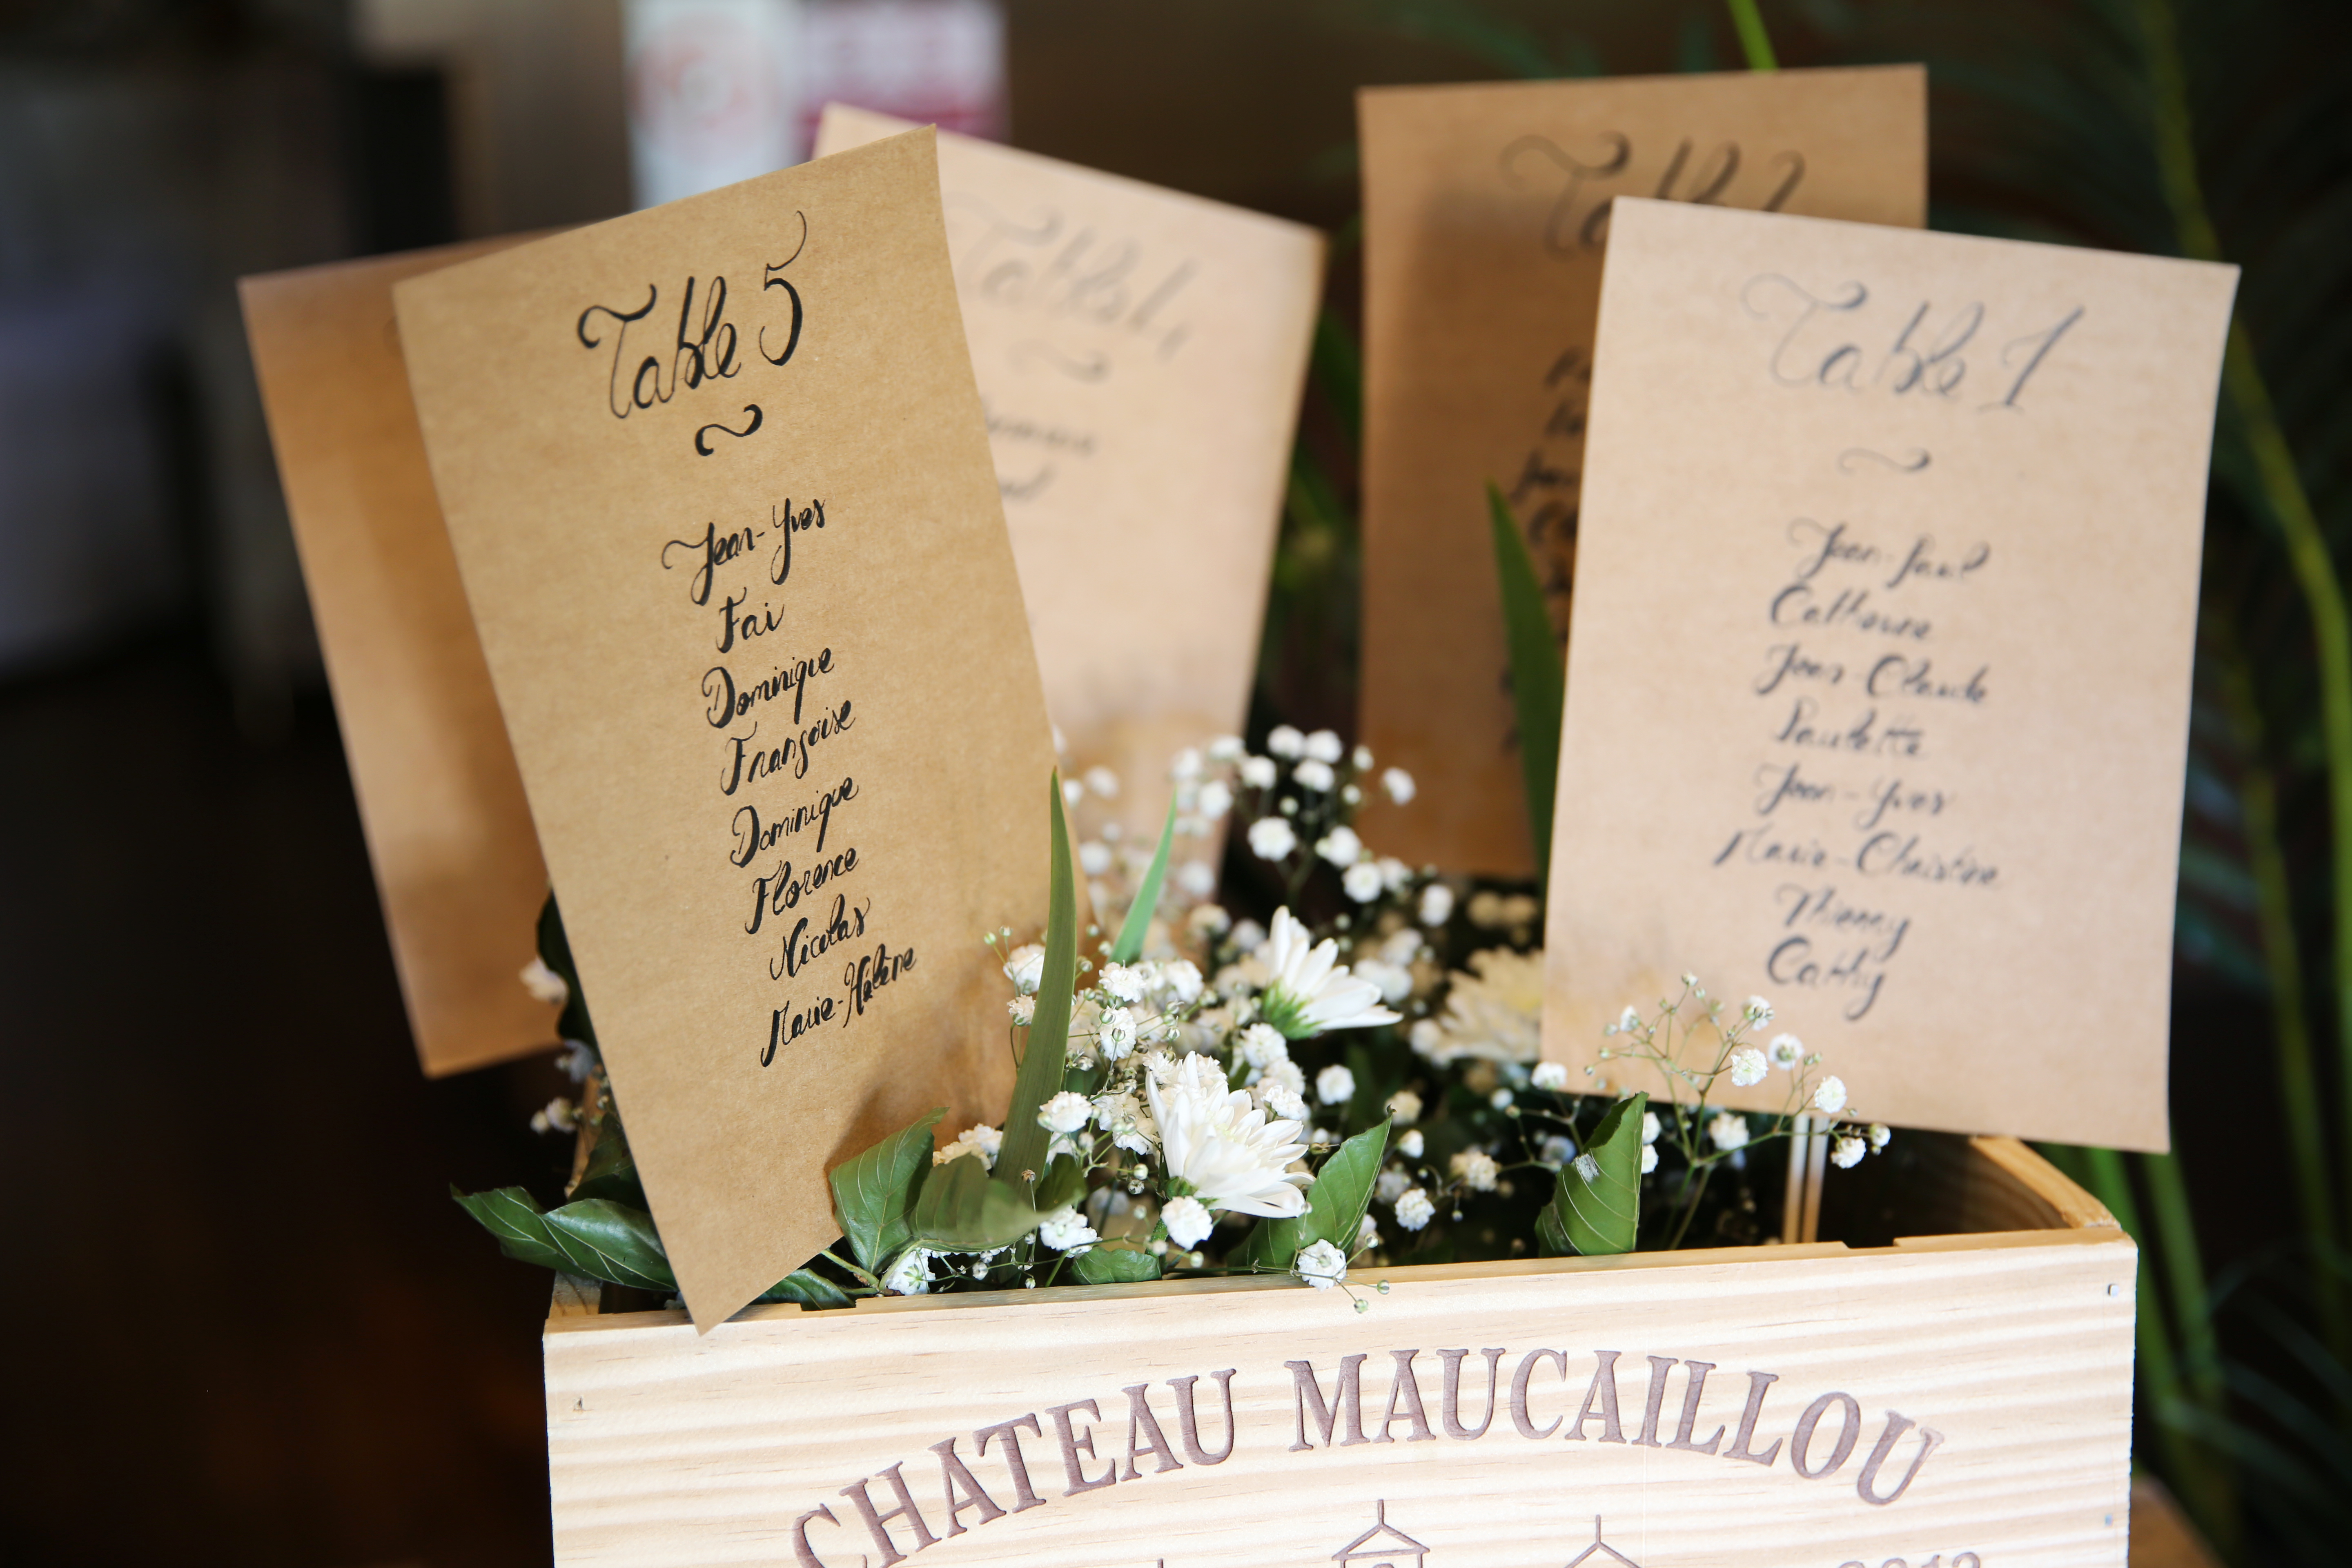 Table 5
~
Jean-Yves
Fai
Dominique
Françoise
Dominique
Florence
Nicolas
Marie-Hélène
Table 4
Table 2
Table 1
~
Jean-Paul
Catherine
Jean-Claude
Paulette
Jean-Yves
Marie-Christine
Thierry
Cathy
CHATEAU MAUCAILLOU